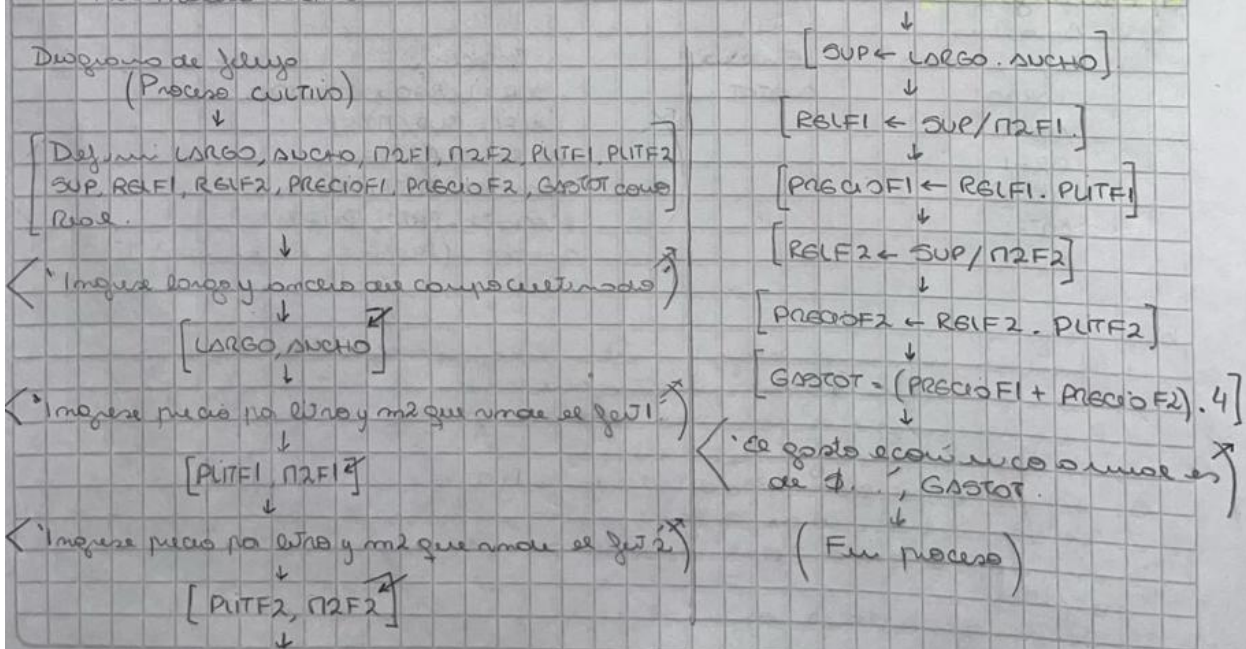 Diagrama de flujo
(Proceso CULTIVO)
↓
[Definir LARGO, ANCHO, M2F1, M2F2, PLITF1, PLITF2
SUP, RELF1, RELF2, PRECIOF1, PRECIOF2, GASTOT como
Real.]
↓
"Ingrese largo y ancho del campo cultivado"
↓
[LARGO, ANCHO]
↓
"Ingrese precio por litro y m2 que rinde el fert1."
↓
[PLITF1, M2F1]
↓
"Ingrese precio por litro y m2 que rinde el fert2"
↓
[PLITF2, M2F2]
↓
↓
[SUP ← LARGO . ANCHO]
↓
[RELF1 ← SUP/M2F1.]
↓
[PRECIOF1 ← RELF1 . PLITF1]
↓
[RELF2 ← SUP/M2F2]
↓
[PRECIOF2 ← RELF2 . PLITF2]
↓
[GASTOT = (PRECIOF1 + PRECIOF2) . 4]
↓
"El gasto económico anual es
de $...", GASTOT.
↓
(Fin proceso)